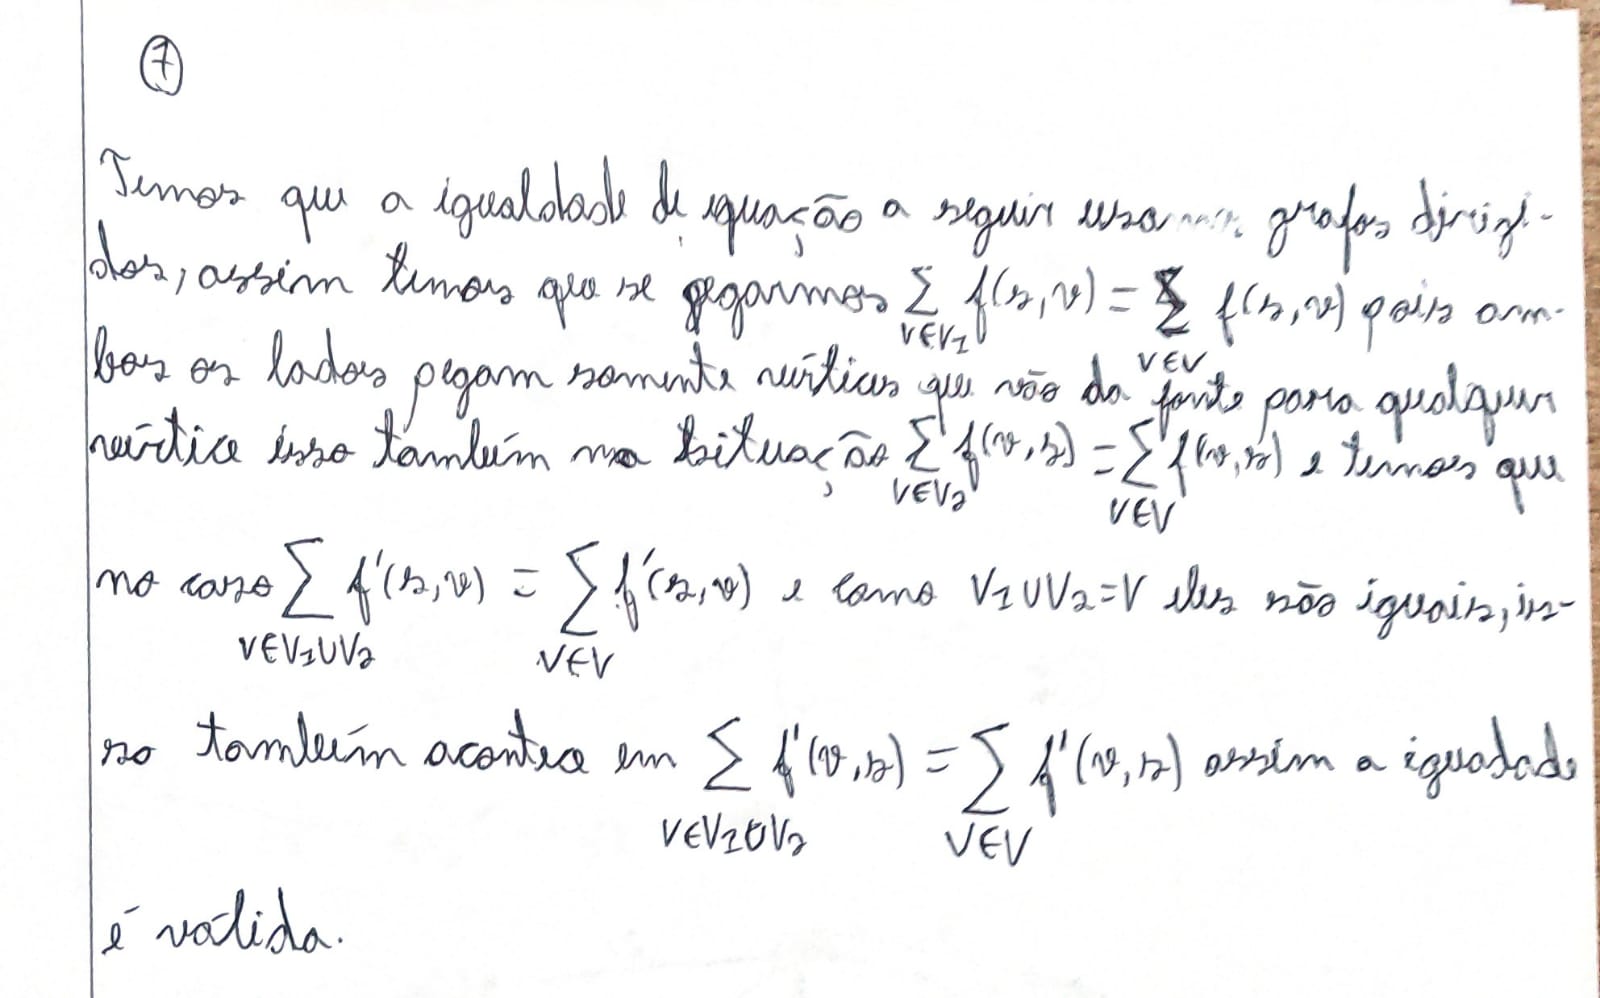 7
Temos que a igualdade de equação a seguir usa grafos dirigi-
dos, assim temos que se pegarmos ∑_{v∈V1} f(s,v) = ∑_{v∈V} f(s,v) pois am-
bos os lados pegam somente vértices que vão da fonte para qualquer
vértice isso também na situação ∑_{v∈V2} f(v,s) = ∑_{v∈V} f(v,s) e temos que
no caso ∑_{v∈V1∪V2} f'(s,v) = ∑_{v∈V} f'(s,v) e como V1∪V2=V eles são iguais, is-
so também acontece em ∑_{v∈V1∪V2} f'(v,s) = ∑_{v∈V} f'(v,s) assim a igualdade
é válida.